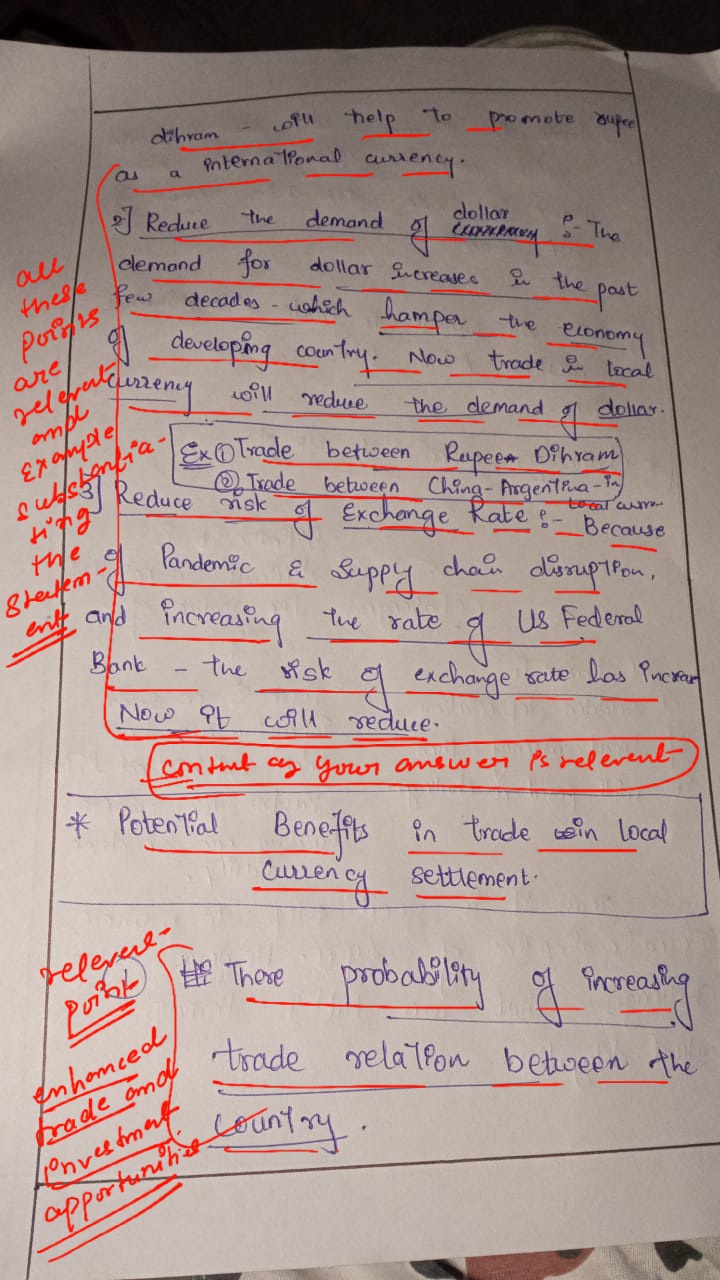 dihram - will help to promote rupee
as a international currency.
2] Reduce the demand of dollar :- The
demand for dollar increases in the past
few decades - which hamper the economy
of developing country. Now trade in local
currency will reduce the demand of dollar.
Ex ① Trade between Rupee Dihram
② Trade between China-Argentina-in
local curren
3] Reduce risk of Exchange Rate :- Because
of Pandemic & Supply chain disruption,
and increasing the rate of US Federal
Bank - the risk of exchange rate has increas
Now it will reduce.
all
these
points
are
relevent
and
Example
substantia-
ting
the
statem-
ent
content of your answer is relevent
* Potential Benefits in trade in local
currency settlement.
① There probability of increasing
trade relation between the
country.
releven-
point
enhanced
trade and
investment
opportunities